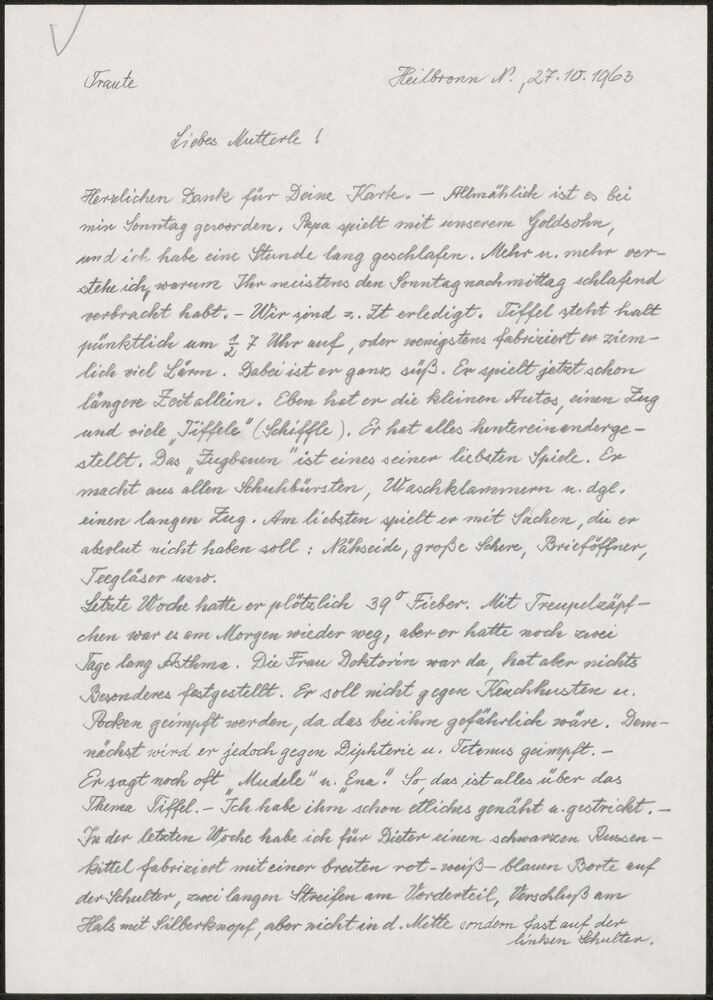 Traute
Heilbronn N., 27.10.1963
Liebes Mutterle!
Herzlichen Dank für Deine Karte. – Allmählich ist es bei
mir Sonntag geworden. Papa spielt mit unserem Goldsohn,
und ich habe eine Stunde lang geschlafen. Mehr u. mehr ver-
stehe ich, warum Ihr meistens den Sonntagnachmittag schlafend
verbracht habt. – Wir sind z. Zt erledigt. Tiffel steht halt
pünktlich um ½ 7 Uhr auf, oder wenigstens fabriziert er ziem-
lich viel Lärm. Dabei ist er ganz süß. Er spielt jetzt schon
längere Zeit allein. Eben hat er die kleinen Autos, einen Zug
und viele „Tiffele" (Schiffle). Er hat alles hintereinanderge-
stellt. Das „Zugbauen" ist eines seiner liebsten Spiele. Er
macht aus allen Schuhbürsten, Waschklammern u. dgl.
einen langen Zug. Am liebsten spielt er mit Sachen, die er
absolut nicht haben soll: Nähseide, große Schere, Brieföffner,
Teegläser usw.
Letzte Woche hatte er plötzlich 39° Fieber. Mit Treupelzäpf-
chen war es am Morgen wieder weg, aber er hatte noch zwei
Tage lang Asthma. Die Frau Doktorin war da, hat aber nichts
Besonderes festgestellt. Er soll nicht gegen Keuchhusten u.
Pocken geimpft werden, da das bei ihm gefährlich wäre. Dem-
nächst wird er jedoch gegen Diphterie u. Tetanus geimpft. –
Er sagt noch oft „Mudele" u. „Ena". So, das ist alles über das
Thema Tiffel. – Ich habe ihm schon etliches genäht u. gestrickt. –
In der letzten Woche habe ich für Dieter einen schwarzen Russen-
kittel fabriziert mit einer breiten rot-weiß-blauen Borte auf
der Schulter, zwei langen Streifen am Vorderteil, Verschluß am
Hals mit Silberknopf, aber nicht in d. Mitte sondern fast auf der
linken Schulter.